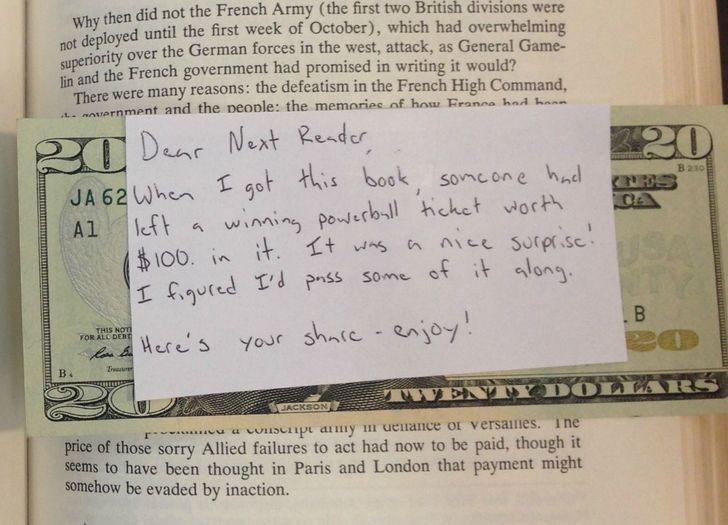 Why then did not the French Army (the first two British divisions were
not deployed until the first week of October), which had overwhelming
superiority over the German forces in the west, attack, as General Game-
lin and the French government had promised in writing it would?
There were many reasons: the defeatism in the French High Command,
government and the people; the memories of how France had been
20
20
B 230
JA 62
A1
Dear Next Reader,
When I got this book, someone had
left a winning powerball ticket worth
$100. in it. It was a nice surprise!
I figured I'd pass some of it along.
Here's your share - enjoy!
THIS NOTE
FOR ALL DEBT
Treasurer
B
B
20
20
JACKSON
TWENTY DOLLARS
a conscript army in defiance of Versailles. The
price of those sorry Allied failures to act had now to be paid, though it
seems to have been thought in Paris and London that payment might
somehow be evaded by inaction.